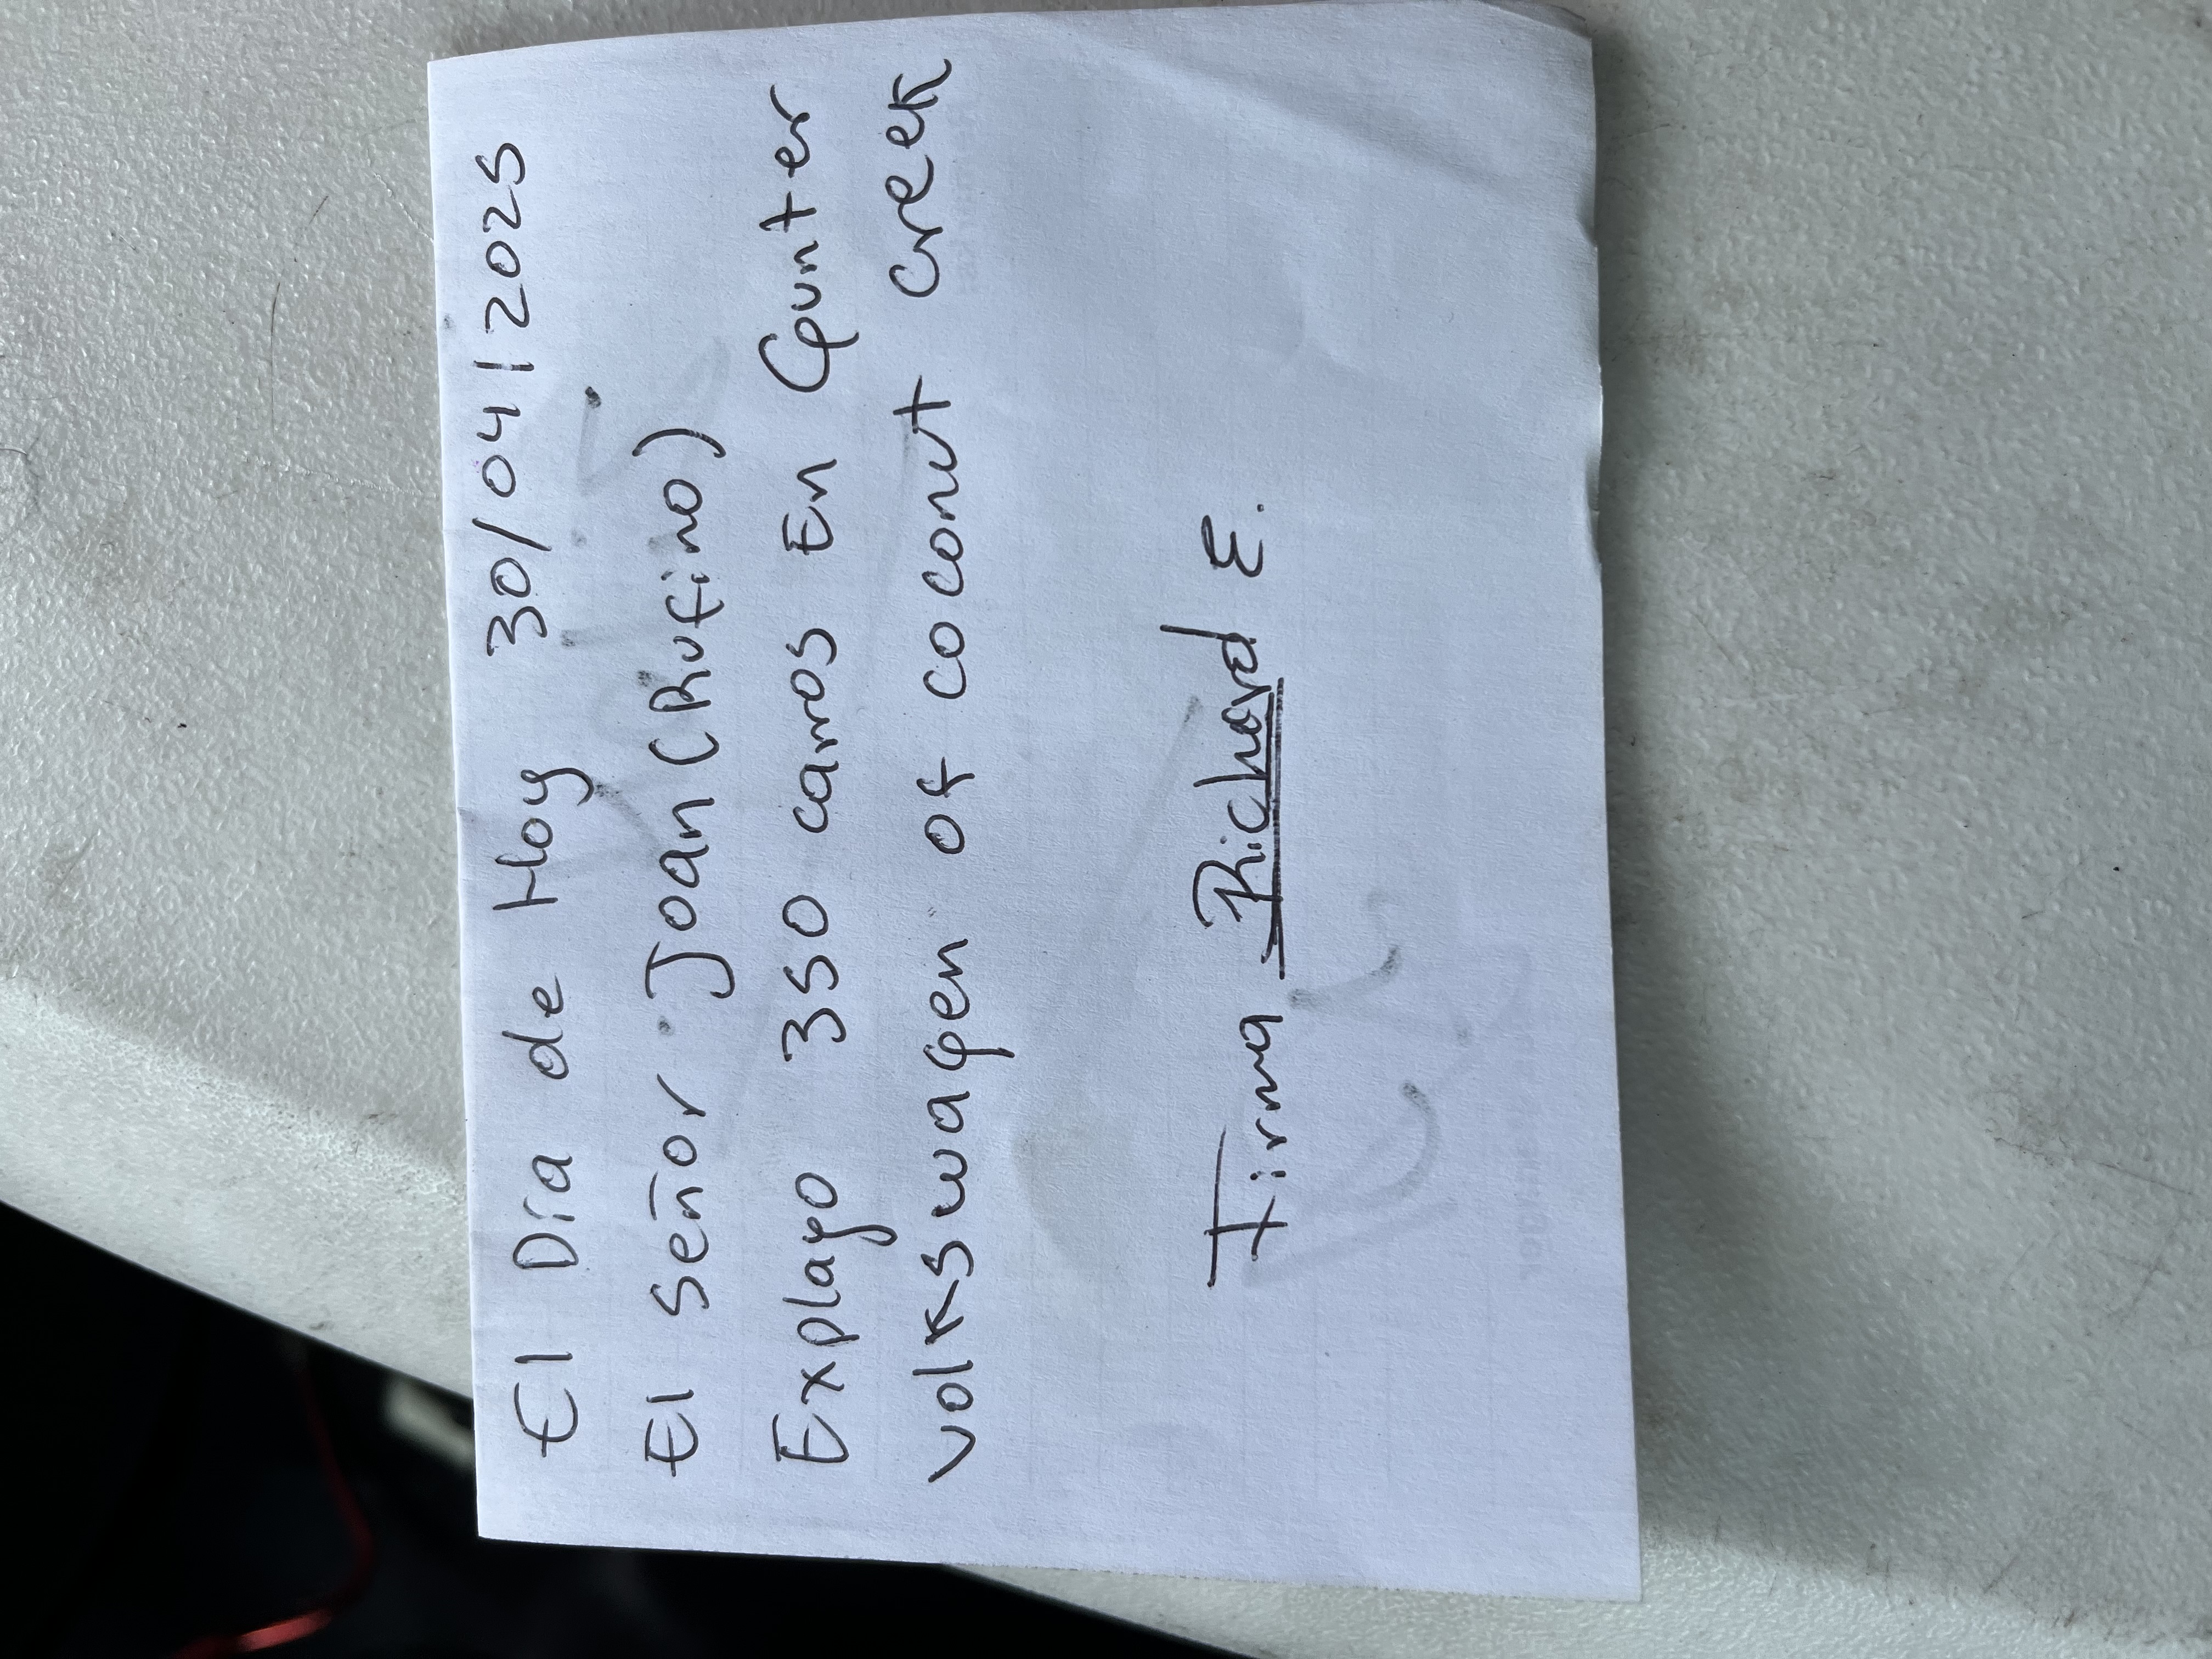 El Día de Hoy 30/04/2025
El señor Joan (Rufino)
Explayo 350 carros En Gunter
volkswagen of coconut creek
Firma Richard E.